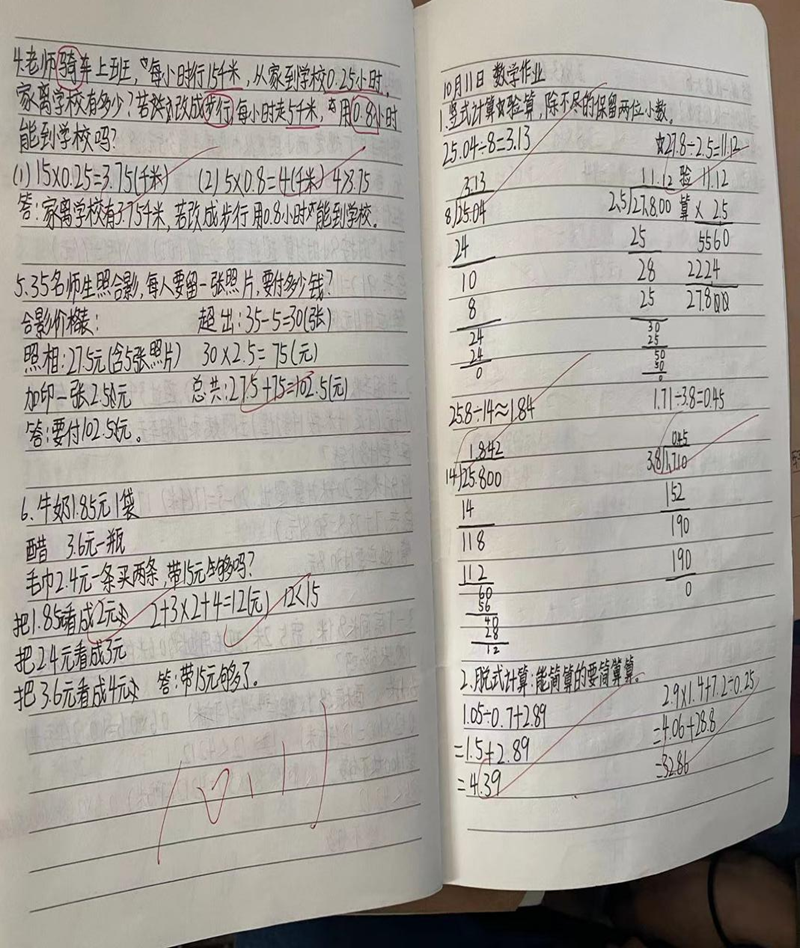 4.老师骑车上班,每小时行15千米,从家到学校0.25小时。
家离学校有多少?若改成步行,每小时走5千米,用0.8小时
能到学校吗?
(1)15×0.25=3.75(千米) (2)5×0.8=4(千米) 4>3.75
答:家离学校有3.75千米,若改成步行用0.8小时能到学校。
5.35名师生照合影,每人要留一张照片,要付多少钱?
合影价格表: 超出:35-5=30(张)
照相:27.5元(含5张照片) 30×2.5=75(元)
加印一张2.5元 总共:27.5+75=102.5(元)
答:要付102.5元。
6.牛奶1.85元1袋
醋 3.6元一瓶
毛巾2.4元一条买两条,带15元够吗?
把1.85看成2元 2+3×2+4=12(元) 12<15
把2.4元看成3元
把3.6元看成4元 答:带15元够了。
10.11
10月11日 数学作业
1.竖式计算验算,除不尽的保留两位小数。
25.04÷8=3.13 ☆27.8÷2.5=11.12
3.13 11.12 验 11.12
8 25.04 2.5 27.800 算 × 2.5
24 25 5560
10 28 2224
8 25 27.800
24 30
24 25
0 50
50
0
25.8÷14≈1.84 1.71÷3.8=0.45
1.842 0.45
14 25.800 3.8 1.710
14 152
118 190
112 190
60 0
56
40
28
12
2.脱式计算:能简算的要简算。
1.05÷0.7+2.89 2.9×1.4+7.2÷0.25
=1.5+2.89 =4.06+28.8
=4.39 =32.86